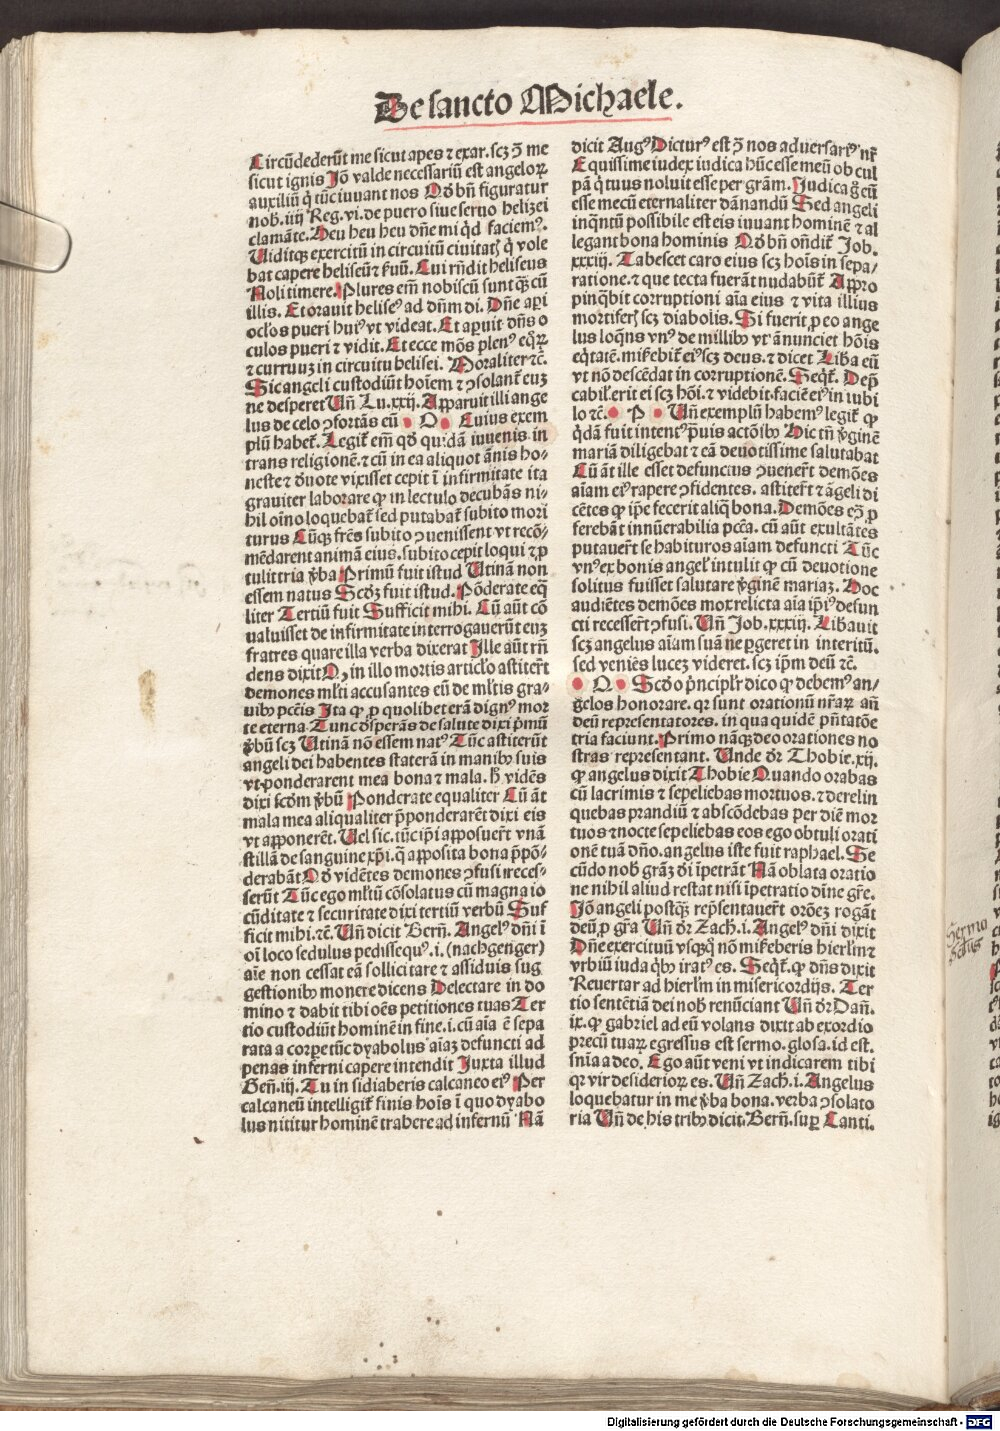 De sancto Michaele.
Circūdederūt me sicut apes ⁊ exar. scꝫ ꝯ me
sicut ignis Jō valde necessariū est angeloꝝ
auxiliū q̇ tūc iuuant nos Qd̄ bn̄ figuratur
nob. iiij Reg. vi. de puero siue seruo helizei
clamāte. Heu heu heu dn̄e mi q̇d faciemꝰ.
Uiditqꝫ exercitū in circuitu ciuitatꝭ q̇ vole
bat capere heliseū ⁊ ẜuū. Cui rn̄dit heliseus
Noli timere. Plures em̄ nobiscū sunt qꝫ cū
illis. Et orauit helisēꝰ ad dn̄m di. Dn̄e aꝑi
oc̄los pueri huiꝰ vt videat. Et aꝑuit dn̄s o
culos pueri ⁊ vidit. Et ecce mōs plenꝰ eqꝝ
⁊ curruuꝫ in circuitu helisei. Moraliter ⁊c̄.
Sic angeli custodiūt hoīem ⁊ ꝯsolant̄ euꝫ
ne desperet Un̄ Lu. xxij. Apparuit illi ange
lus de celo ꝯfortās eū O Cuius exem
plū habet̄. Legit̄ em̄ qd̄ quidā iuuenis in
trans religionē. ⁊ cū in ea aliquot ānis ho-
neste ⁊ deuote vixisset cepit ī infirmitate ita
grauiter laborare ꝙ in lectulo decubās ni-
hil oīno loquebat̄ sed putabat̄ subito mori
turus Cūqꝫ fr̄es subito ꝯuenissent vt recō-
mēdarent animā eius. subito cepit loqui ⁊ ꝓ
tulit tria v̄ba Primū fuit istud Utinā non
essem natus Scd̄ꝫ fuit istud. Pōderate eq̄
liter Tertiū fuit Sufficit mihi. Cū aūt cō
ualuisset de infirmitate interrogauerūt euꝫ
fratres quare illa verba dixerat Ille aūt rn̄
dens dixit Qꝫ in illo mortis artic̄lo astiter̄t
demones ml̄ti accusantes eū de ml̄tis gra-
uibꝰ pctīs Ita ꝙ ꝓ quolibet erā dignꝰ mor
te eterna. Tunc dsperās de salute dixi p̄mū
v̄bū scꝫ Utinā nō essem natꝰ Tūc astiterūt
angeli dei habentes staterā in manibꝰ suis
vt ponderarent mea bona ⁊ mala. h̄ vidēs
dixi scd̄m v̄bū Ponderate equaliter Cū āt
mala mea aliqualiter p̄ponderarēt dixi eis
vt apponerēt. Uel sic. tūc ip̄i apposuer̄t vnā
stillā de sanguine xp̄i. q̄ apposita bona p̄pō-
derabāt Qd̄ vidētes demones ꝯfusi recess-
serūt Tūc ego ml̄tū cōsolatus cū magna io
cūditate ⁊ securitate dixi tertiū verbū Suf
ficit mihi. ⁊c̄. Un̄ dicit Bern̄. Angelꝰ dn̄i ī
oī loco sedulus pedissequꝰ. i. (nachgenger)
aīe non cessat eā sollicitare ⁊ assiduis sug
gestionibꝰ monere dicens Delectare in do
mino ⁊ dabit tibi oēs petitiones tuas Ter
tio custodiūt hominē in fine. i. cū aīa ē sepa
rata a corꝑe tūc dyabolus aīaꝫ defuncti ad
penas inferni capere intendit Juxta illud
Gen̄. iij. Tu insidiaberis calcaneo eiꝰ Per
calcaneū intelligit̄ finis hoīs ī quo dyabo
lus nititur hominē trahere ad infernū Nā
dicit Augꝰ Dicturꝰ est ꝯ nos aduersariꝰ nr̄
Equissime iudex iudica hūc esse meū ob cul
pā q̇ tuus noluit esse per grām. Judica g̊ eū
esse mecū eternaliter dānandū Sed angeli
inqn̄tū possibile est eis iuuant hominē ⁊ al
legant bona hominis Qd̄ bn̄ ondit̄ Job.
xxxiij. Tabescet caro eius scꝫ hoīs in sepa/
ratione. ⁊ que tecta fuerāt nudabūt̄ Appro
pinq̄bit corruptioni aīa eius ⁊ vita illius
mortiferis scꝫ diabolis. Si fuerit ꝓ eo ange
lus loq̄ns vnꝰ de millibꝰ vt ānunciet hōīs
eq̄taiē. mis̄ebit̄ eiꝰ scꝫ deus. ⁊ dicet Lib̄a eū
vt nō descēdat in corruptionē. Seqt̄. Dep̄
cabit̄. erit ei scꝫ hōi. ⁊ videbit. faciē eiꝰ in iubi
lo ⁊c̄. P Un̄ exemplū habemꝰ legit̄ ꝙ
q̇dā fuit intentꝰ p̄uis actōibꝰ Hic tn̄ v̄ginē
mariā diligebat ⁊ eā deuotissime salutabat
Cū āt ille esset defunctus ꝯuener̄t demōes
aīam eiꝰ rapere ꝯfidentes. astiter̄t ⁊ āgeli di
cētes ꝙ ip̄e fecerit aliq̄ bona. Demōes eꝫ ꝓ
ferebāt innūerabilia pctā. cū aūt exultātes
putauer̄t se habituros aīam defuncti Tūc
vnꝰ ex bonis angel̓ intulit ꝙ cū deuotione
solitus fuisset salutare v̄ginē mariaꝫ. Hoc
audiētes demōes mox relicta aīa ip̄iꝰ defun
cti recesser̄t ꝯfusi. Un̄ Job. xxxiij. Lib̄auit
scꝫ angelus aīam suā ne ꝑgeret in interitū.
sed veniēs luceꝫ videret. scꝫ ip̄m deū ⁊c̄.
Q Scd̄o p̄ncipl̓r dico ꝙ debemꝰ an/
gelos honorare. qꝛ sunt orationū nr̄aꝝ añ
deū representatores. in qua quidē pn̄tatōe
tria faciunt. Primo nāqꝫ deo orationes no
stras representant. Unde dr̄ Thobie. xij.
ꝙ angelus dixit Thobie Quando orabas
cū lacrimis ⁊ sepeliebas mortuos. ⁊ derelin
quebas prandiū ⁊ abscōdebas per diē mor
tuos ⁊ nocte sepeliebas eos ego obtuli orati
onē tuā dn̄o. angelus iste fuit raphael. Se
cūdo nob̄ grāꝫ dī īpetrāt Nā oblata oratio
ne nihil aliud restat nisi īpetratio dīne gr̄e.
Jō angeli postqꝫ rep̄sentauer̄t orōeꝫ rogāt
deū ꝓ grā Un̄ dr̄ Zach̄. i. Angelꝰ dn̄i dixit
Dn̄e exercituū vsqꝫq̊ nō mis̄eberis hierl̄m ⁊
vrbiū iuda q̇bꝰ iratꝰ es. Seqt̄. ꝙ dn̄s dixit
Reuertar ad hierl̄m in misericordijs. Ter
tio sentētiā dei nob̄ renūciant Un̄ dr̄ Dañ.
ix. ꝙ gabriel ad eū volans dixit ab exordio
precū tuaꝝ egressus est sermo. glosa. id est.
sn̄ia a deo. Ego aūt veni vt indicarem tibi
qꝛ vir desiderioꝝ es. Un̄ Zach̄. i. Angelus
loquebatur in me v̄ba bona. verba ꝯsolato
ria Un̄ de his tribꝰ dicit. Bern̄. suꝑ Canti.
Sermo
Digitalisierung gefördert durch die Deutsche Forschungsgemeinschaft - DFG